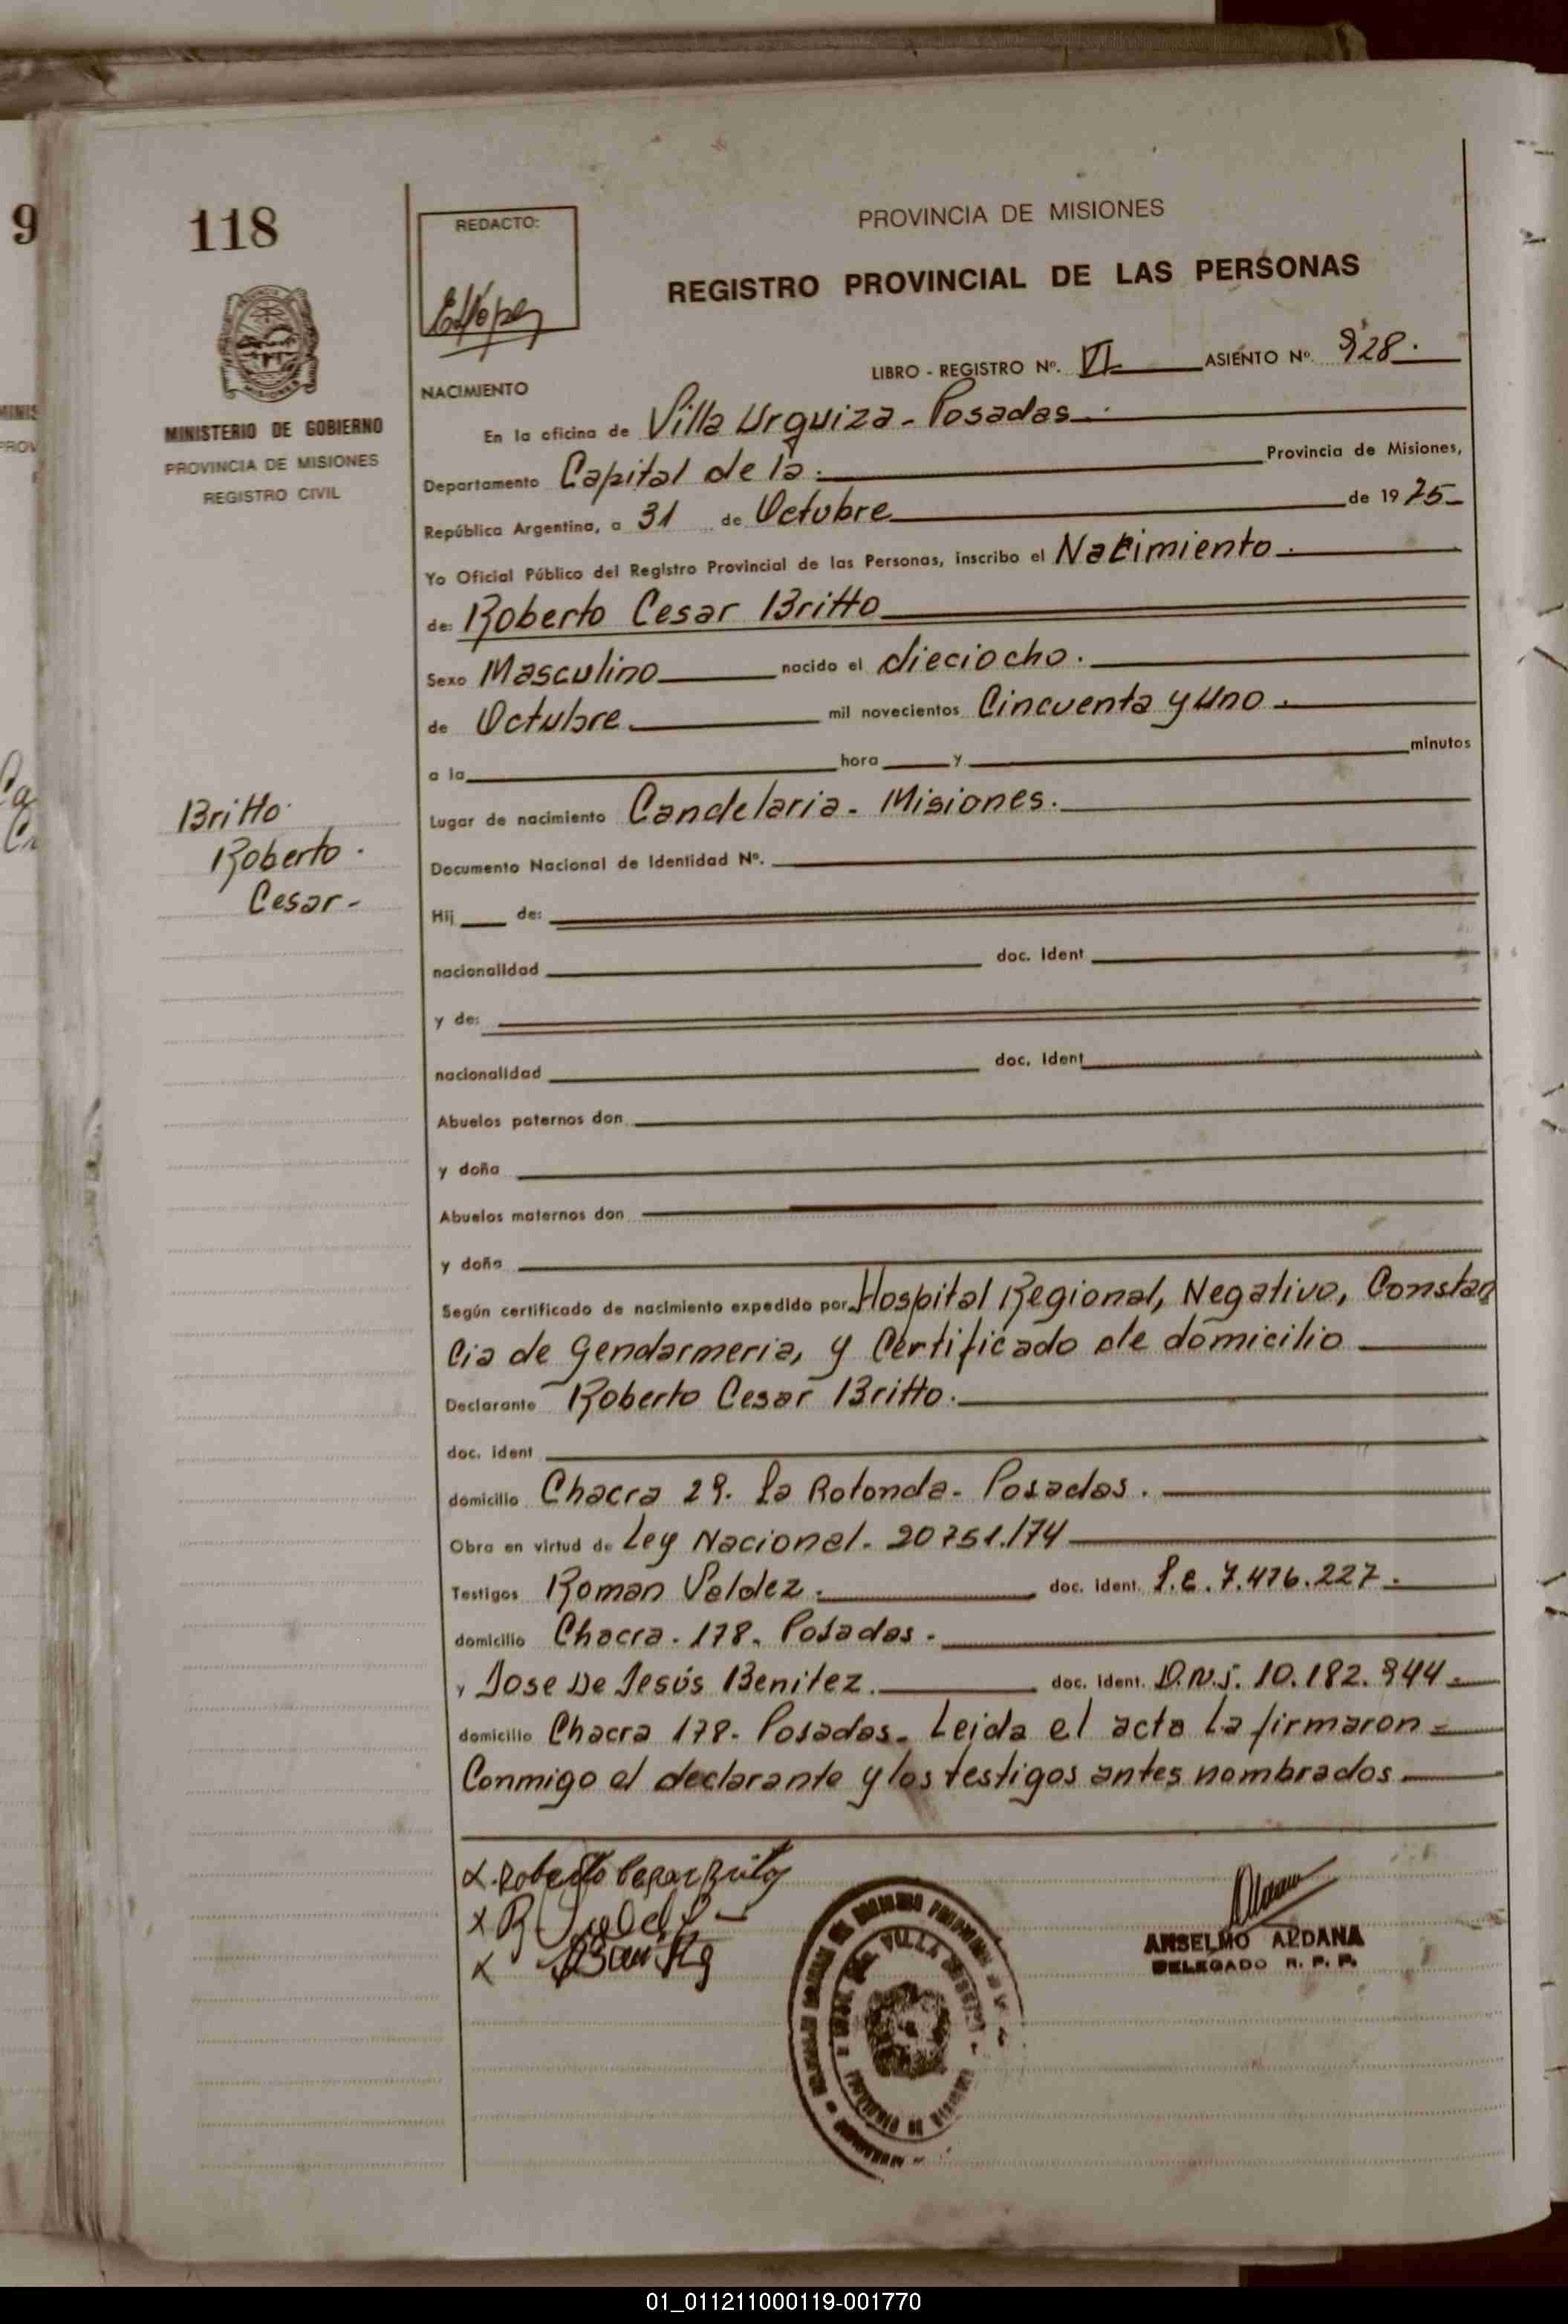 9
118
REDACTO:
PROVINCIA DE MISIONES
REGISTRO PROVINCIAL DE LAS PERSONAS
LIBRO - REGISTRO Nº. VI ASIENTO Nº. 928.
MINISTERIO DE GOBIERNO
PROVINCIA DE MISIONES
REGISTRO CIVIL
NACIMIENTO
En la oficina de Villa Urquiza - Posadas.
Departamento Capital de la. Provincia de Misiones,
República Argentina, a 31 de Octubre de 19 75-
Yo Oficial Público del Registro Provincial de las Personas, inscribo el Nacimiento.
de: Roberto Cesar Britto
Sexo Masculino nacido el dieciocho.
de Octubre. mil novecientos Cincuenta y Uno.
a la hora y minutos
Britto.
Roberto.
Cesar-
Lugar de nacimiento Candelaria - Misiones.
Documento Nacional de Identidad Nº.
Hij de:
nacionalidad doc. ident
y de:
nacionalidad doc. ident
Abuelos paternos don
y doña
Abuelos maternos don
y doña
Según certificado de nacimiento expedido por Hospital Regional, Negativo, Constan
cia de Gendarmeria, y Certificado de domicilio
Declarante Roberto Cesar Britto.
doc. ident
domicilio Chacra 29. La Rotonda - Posadas.
Obra en virtud de Ley Nacional. 20751./74
Testigos Roman Valdez. doc. ident. L.E. 7.476.227.
domicilio Chacra. 178. Posadas.
y Jose De Jesús Benitez. doc. ident. D.N.I. 10.182.944.
domicilio Chacra 178- Posadas. Leida el acta La firmaron =
Conmigo el declarante y los testigos antes nombrados
x. Roberto Cesar Brito
x
x
VILLA
ANSELMO ALDANA
DELEGADO R. P. P.
01_011211000119-001770